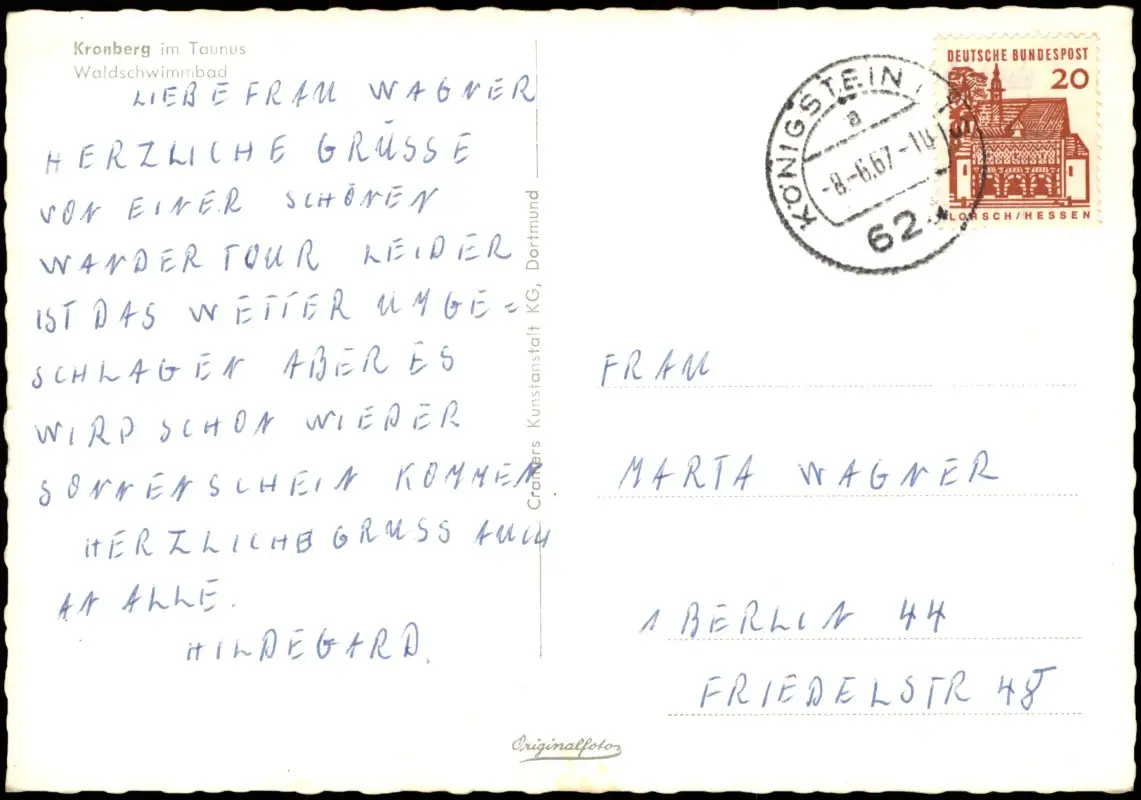 Kronberg im Taunus
Waldschwimmbad
LIEBE FRAU WAGNER
HERZLICHE GRÜSSE
VON EINER SCHÖNEN
WANDERTOUR LEIDER
IST DAS WETTER UMGE=
SCHLAGEN ABER ES
WIRD SCHON WIEDER
SONNENSCHEIN KOMMEN.
HERZLICHE GRUSS AUCH
AN ALLE.
HILDEGARD.
Cramers Kunstanstalt KG, Dortmund
Originalfoto
DEUTSCHE BUNDESPOST
20
LORSCH/HESSEN
KÖNIGSTEIN
a
-8.-6.67-18
62
FRAU
MARTA WAGNER
1 BERLIN 44
FRIEDELSTR